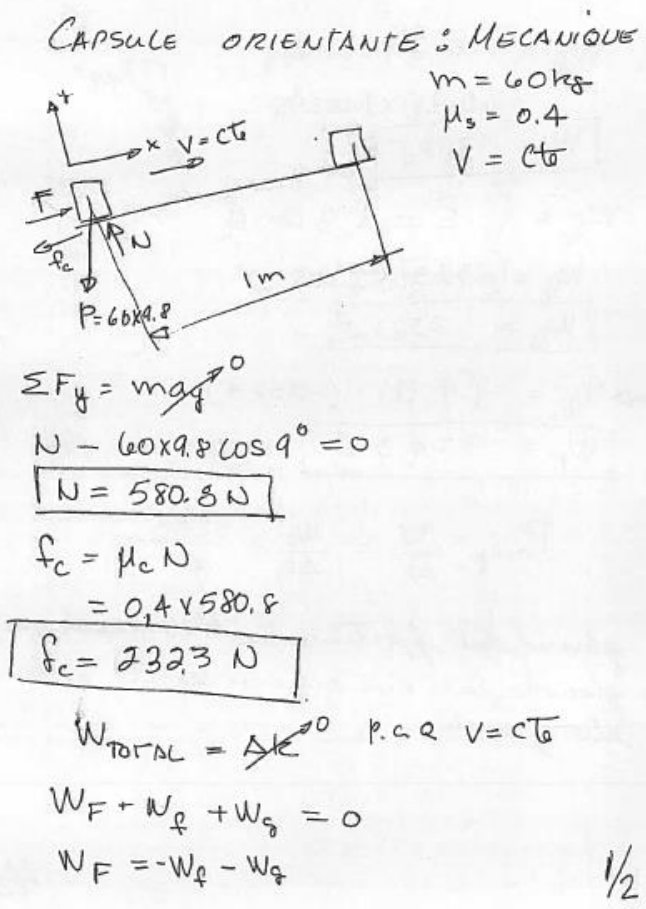 CAPSULE ORIENTANTE : MECANIQUE
m = 60 kg
μs = 0.4
V = cte
Y
x V = cte
F
N
fc
1 m
P = 60x9.8
ΣFy = may 0
N - 60x9.8 cos 9° = 0
N = 580.8 N
fc = μc N
= 0,4 x 580.8
fc = 2323 N
WTOTAL = Δk 0 p.c.q V = cte
WF + Wf + Wg = 0
WF = -Wf - Wg
1/2